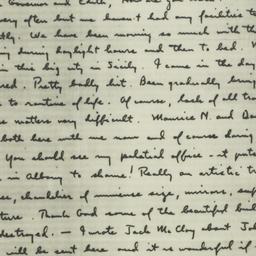 Governor and Edith, How are you
very often but we haven't had any facilities to
tly. We have been moving so much with the
ing during daylight hours and then to bed. W
in this big city in Sicily. I came in the day
red. Pretty badly hit. Been gradually bring
to routine of life. Of course, lack of all tra
s matters very difficult. Maurice N. and Da
both here with me now and of course during
You should see my palatial office - it puts
in Albany to shame! Really an artistic tr
se, chandelier of immense size, mirrors, sup
ture. Thank God some of the beautiful buil
destroyed. — I wrote Jack McCloy about Joh
will be sent here and it is wonderful if